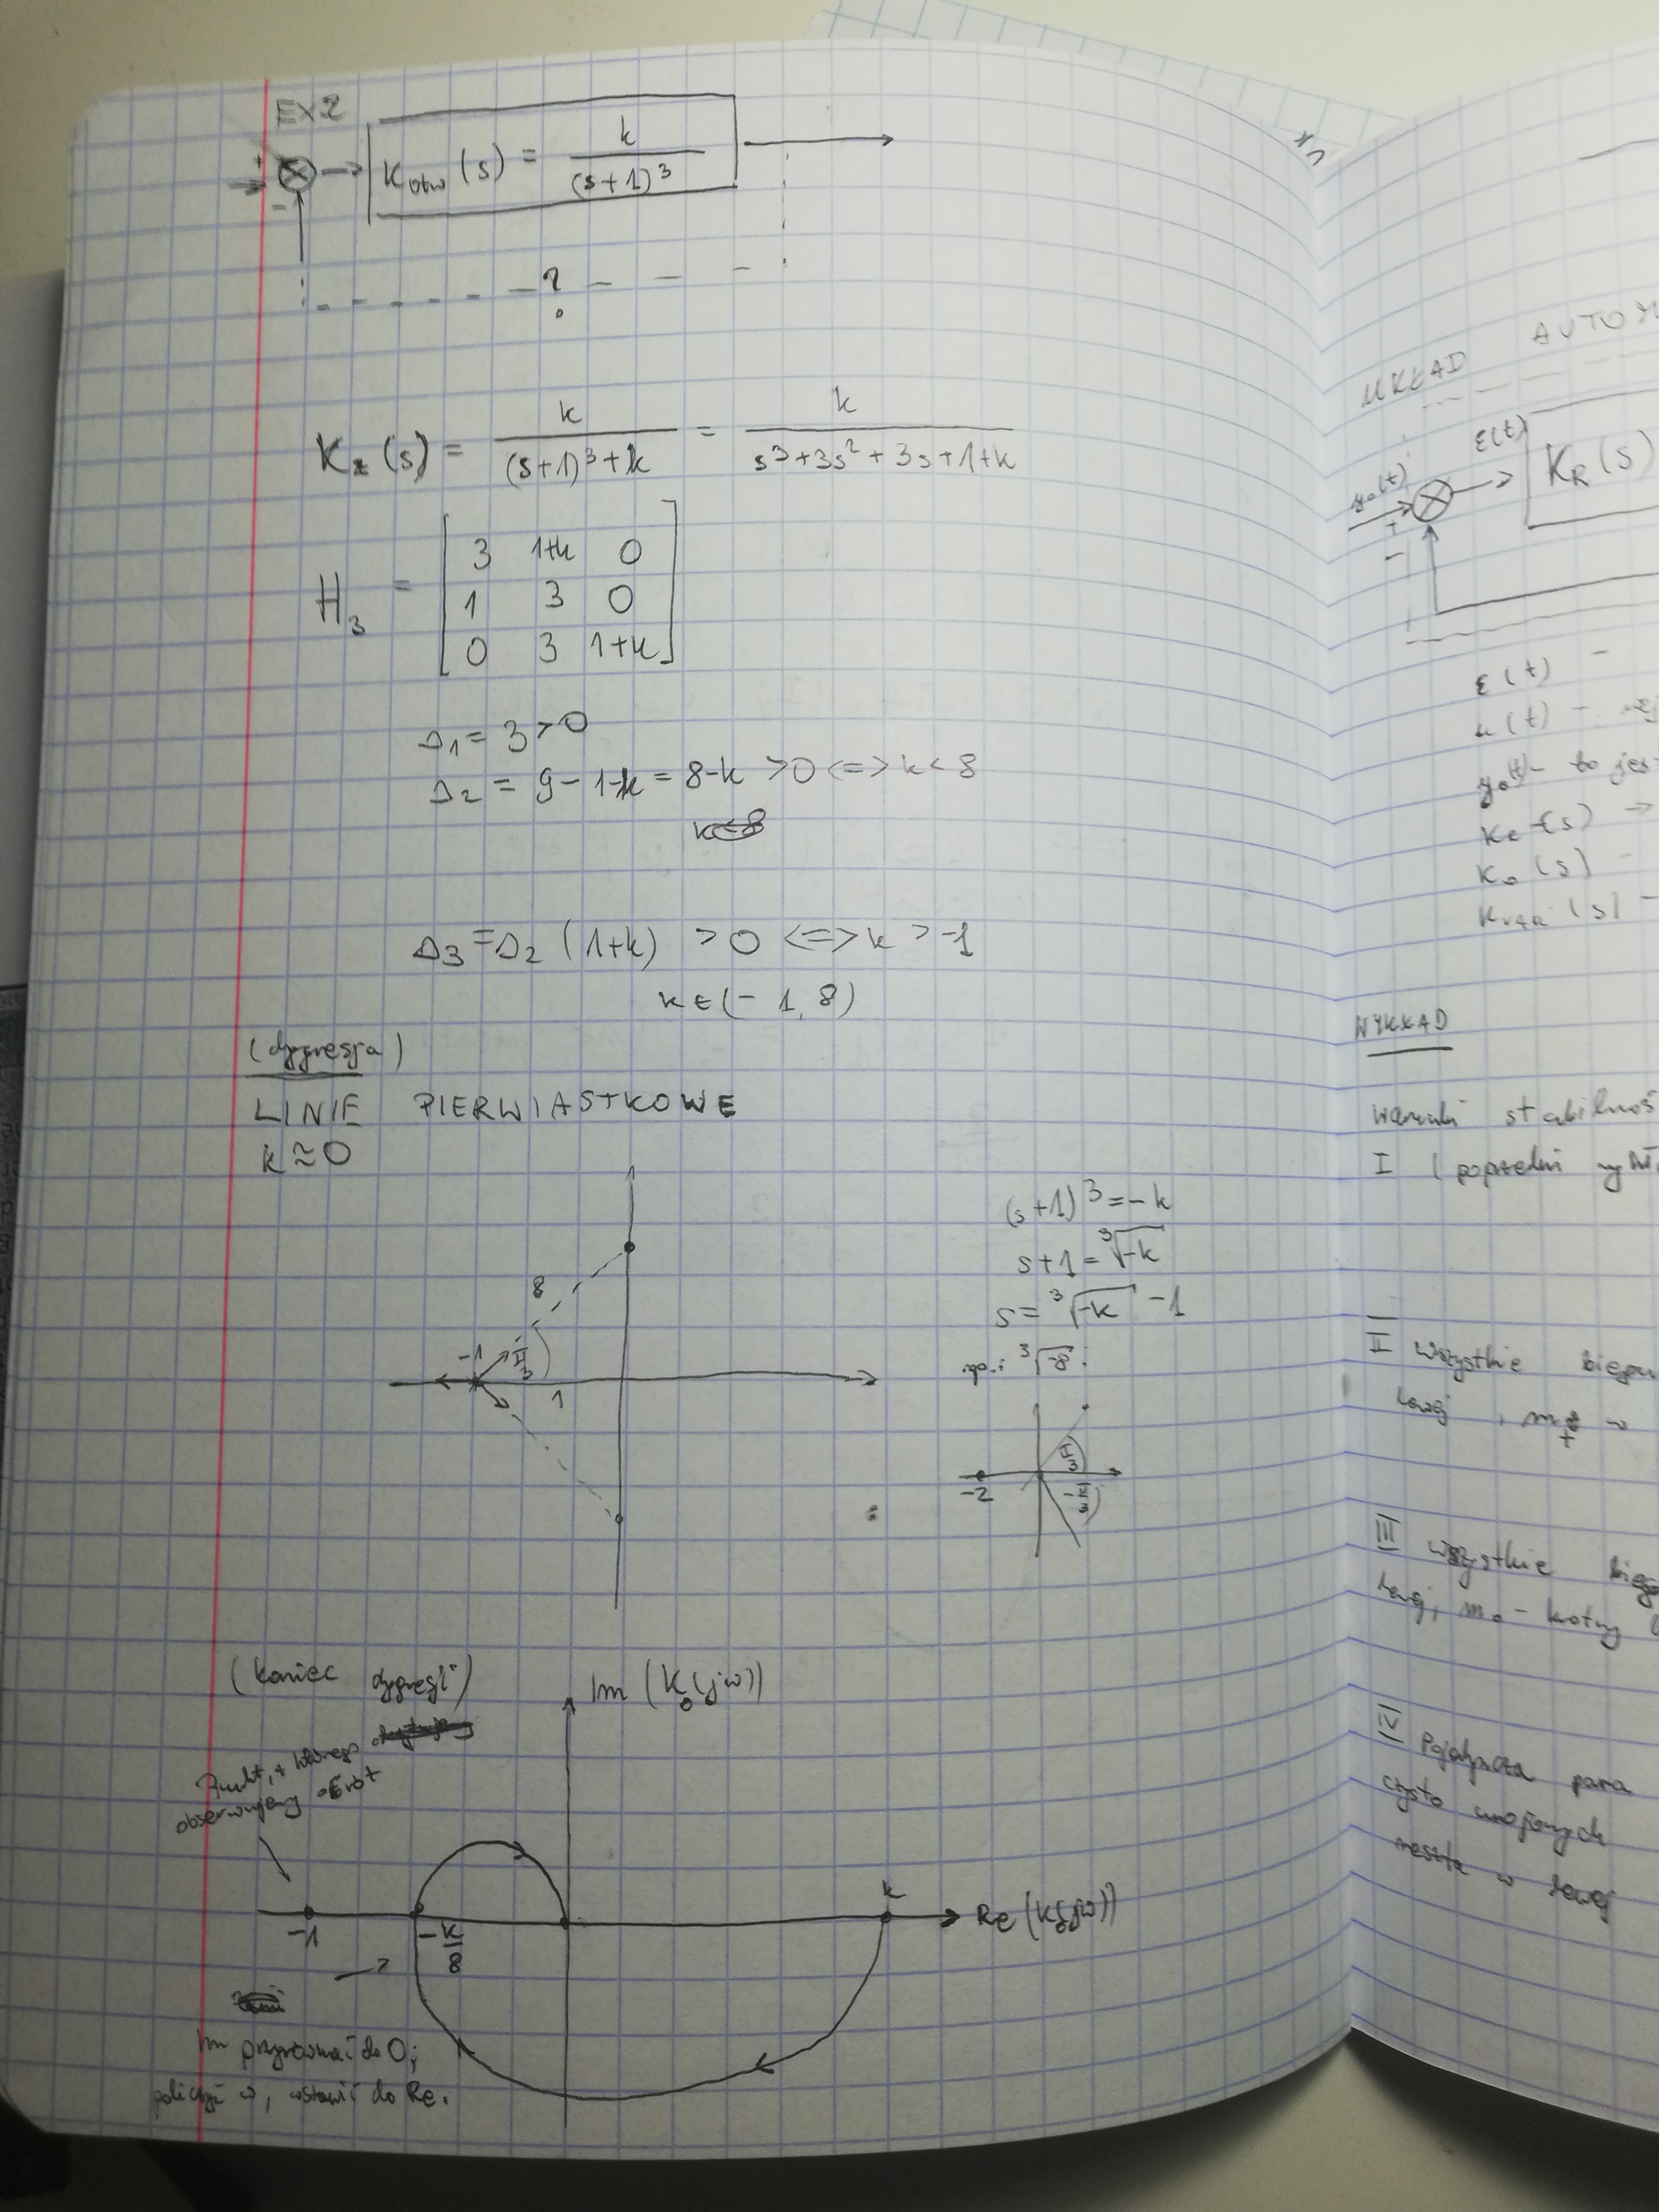 EX2
+
-
K_otw (s) = k / (s+1)^3
?
K_z (s) = k / ((s+1)^3 + k) = k / (s^3+3s^2+3s+1+k)
H_3 = [ 3 1+k 0
1 3 0
0 3 1+k ]
Δ_1 = 3 > 0
Δ_2 = 9-1-k = 8-k > 0 <=> k < 8
Δ_3 = Δ_2 (1+k) > 0 <=> k > -1
k ∈ (-1, 8)
(dygresja)
LINIE PIERWIASTKOWE
k ≅ 0
8
-1
π/3
1
(s+1)^3 = -k
s+1 = ∛-k
s = ∛-k - 1
np.: ∛-8 :
π/3
-π/3
-2
(koniec dygresji)
Im (K_o(jω))
Punkt, z którego
obserwujemy obrót
-1
-k/8
k
Re (K_o(jω))
Im przyrównać do 0;
policzyć ω, wstawić do Re.
UKŁAD AUTOM
y_o(t)
+
-
ε(t)
K_R (s)
ε(t) -
u(t) -
y_o(t) - to jes
K_R (s) →
K_o (s) -
(s) -
WYKŁAD
warunki stabilnoś
I (poprzedni
II wszystkie biegu
lewej, m_+ w
III wszystkie biegu
lewej, m_o - krotny
IV Pojedyncza para
czysto urojonych
reszta w lewej